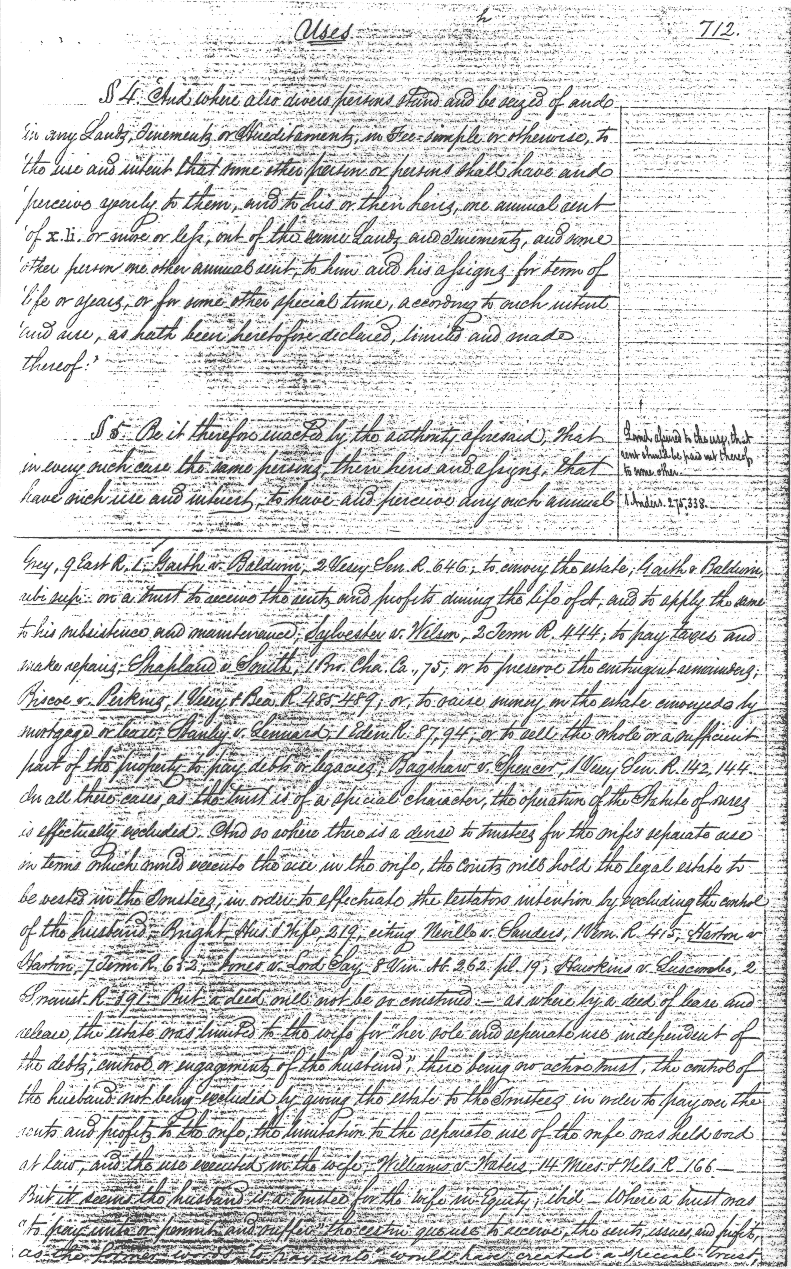 Uses
712.
§ 4. And where also divers persons stand and be seized of and
in any Landz, Tenementz or Hereditamentz, in Fee-simple or otherwise, to
'the use and intent that some other person or persons shall have and
'perceive yearly to them, and to his or their heirs, one annual rent
'of x.li. or more or less, out of the same Landz and Tenementz, and some
'other person one other annual rent, to him and his assigns for term of
'life or years, or for some other special time, according to such intent
'and use, as hath been heretofore declared, limited and made
thereof:'
§ 5. Be it therefore enacted by the authority aforesaid, That
in every such case the same persons, their heirs and assigns, that
have such use and interest, to have and perceive any such annual
Lands assured to the use, that
rent should be paid out thereof
to some other.
1 Anders. 275, 338.
Grey, 9 East R. 1; Garth v. Baldwin, 2 Vesey Sen. R. 646; to convey the estate; Garth v. Baldwin,
ubi sup: on a trust to receive the rents and profits during the life of A, and to apply the same
to his subsistence and maintenance; Sylvester v. Wilson, 2 Term R. 444; to pay taxes and
make repairs; Shapland v. Smith, 1 Bro. Cha. Ca., 75; or to preserve the contingent remainders;
Biscoe v. Perkins, 1 Vesey & Bea. R. 485. 489; or, to raise money on the estate conveyed by
mortgage or lease; Stanly v. Lennard, 1 Eden R. 87, 94; or to sell the whole or a sufficient
part of the property to pay debts or legacies; Bagshaw v. Spencer, 1 Vesey Sen. R. 142, 144.
In all these cases, as the trust is of a special character, the operation of the Statute of uses
is effectually excluded. And so where there is a devise to trustees for the wife's separate use
in terms which would execute the use in the wife, the courts will hold the legal estate to
be vested in the Trustees, in order to effectuate the testators intention by excluding the control
of the husband; Bright Hus & Wife, 219, citing Neville v. Sanders, 1 Vern. R. 415; Harton v
Harton, 7 Term R. 652; Jones v. Lord Say, 8 Vin. Ab. 262. pl. 19; Hawkins v. Luscombe, 2
Swanst. R. 391. But a deed will not be so construed – as where by a deed of lease and
release, the estate was limited to the wife for "her sole and separate use independent of
the debts, control or engagements of the husband", there being no active trust, the control of
the husband not being excluded by giving the estate to the Trustees in order to pay over the
rents and profits to the wife, the limitation to the separate use of the wife was held void
at law, and the use executed in the wife; Williams v. Waters, 14 Mees. & Wels. R. 166 –
But it seems the husband is a trustee for the wife in Equity; ibid – Where a trust was
"to pay unto or permit and suffer the cestui que use to receive, the rents, issues, and profits,
as the former to pay unto would have created a special trust,